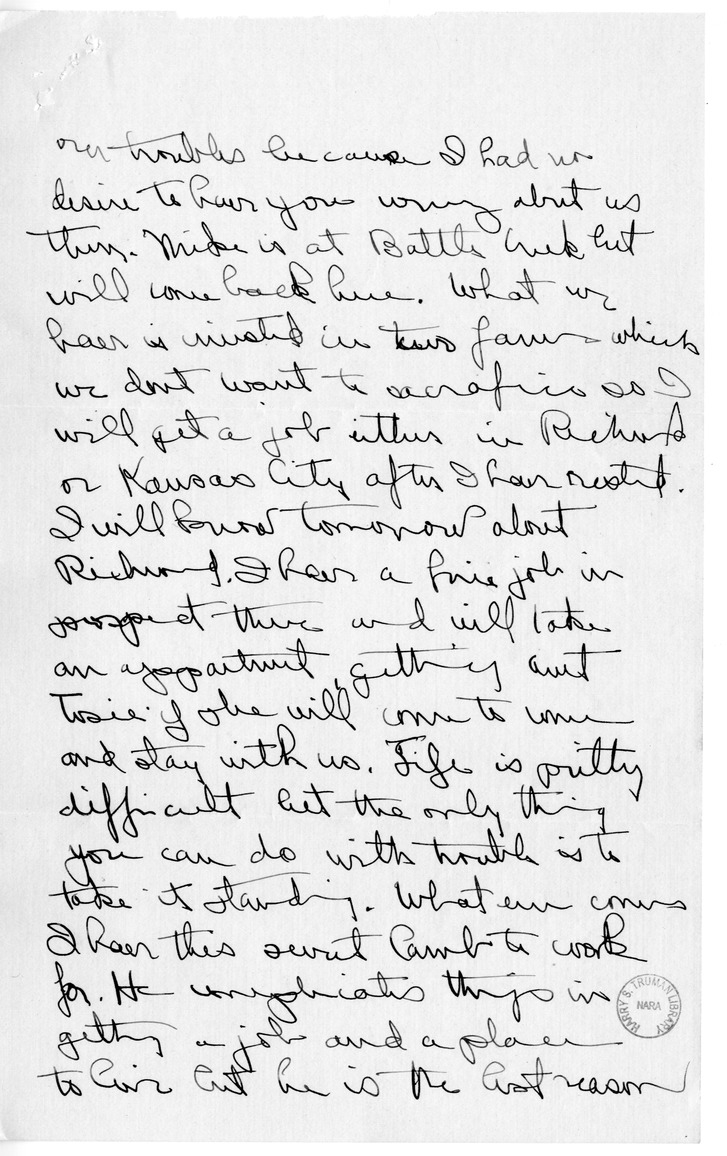 our troubles because I had no
desire to have you worry about us
then. Mike is at Battle Creek but
will come back here. What we
have is invested in two farms which
we dont want to sacrafice so I
will get a job either in Richmond
or Kansas City after I have rested.
I will know tomorrow about
Richmond. I have a fine job in
prospect there and will take
an appartment, getting aunt
Tosie if she will come to come
and stay with us. Life is pretty
difficult but the only thing
you can do with trouble is to
take it standing. What ever comes
I have this sweet lamb to work
for. He complicates things in
getting a job and a place
to live but he is the best reason
HARRY S. TRUMAN LIBRARY
NARA